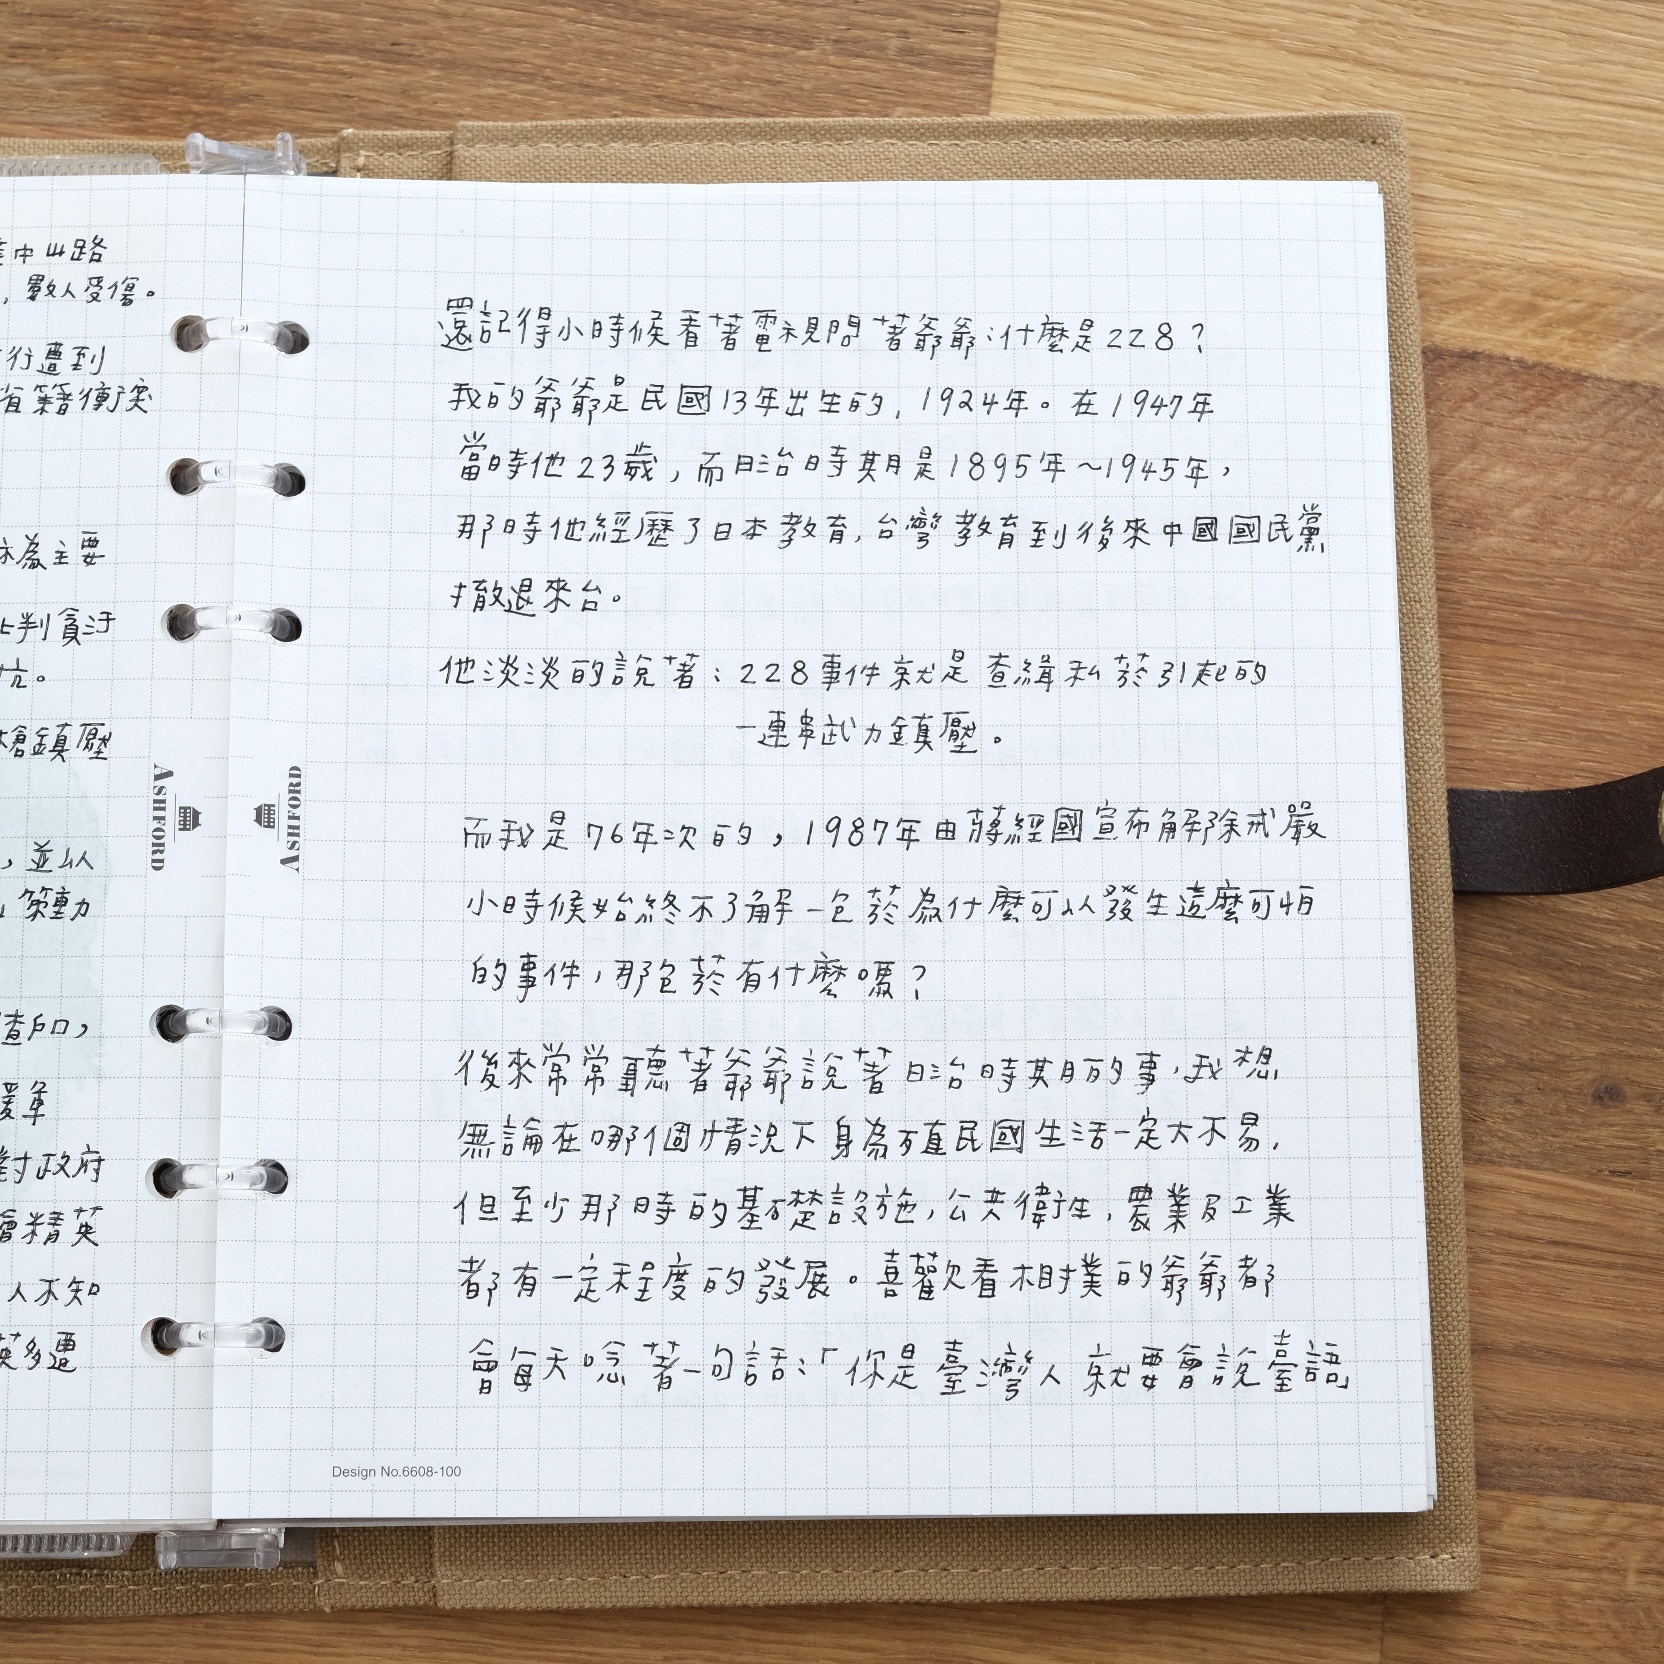 中山路
，數人受傷。
行遭到
省籍衝突
為主要
批判貪汙
抗。
槍鎮壓
，並以
策動
渣印，
援軍
對政府
會精英
人不知
英多遭
ASHFORD
ASHFORD
還記得小時候看著電視問著爺爺：什麼是228？
我的爺爺是民國13年出生的，1924年。在1947年
當時他23歲，而日治時期是1895年~1945年，
那時他經歷了日本教育，台灣教育到後來中國國民黨
撤退來台。
他淡淡的說著：228事件就是查緝私菸引起的
一連串武力鎮壓。
而我是76年次的，1987年由蔣經國宣布解除戒嚴
小時候始終不了解一包菸為什麼可以發生這麼可怕
的事件，那包菸有什麼嗎？
後來常常聽著爺爺說著日治時期的事，我想
無論在哪個情況下身為殖民國生活一定大不易，
但至少那時的基礎設施，公共衛生，農業及工業
都有一定程度的發展。喜歡看相撲的爺爺都
會每天唸著一句話：「你是臺灣人就要會說臺語」
Design No.6608-100